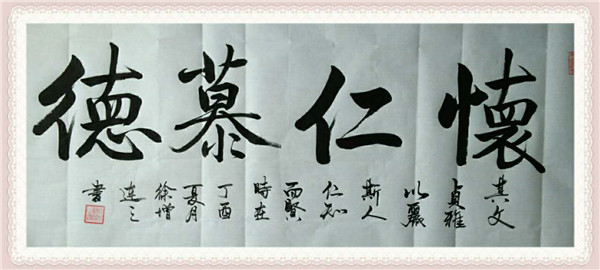 懷仁慕德
其文
貞雅
以麗
斯人
仁和
而賢
時在
丁酉
夏月
徐增
連之
書